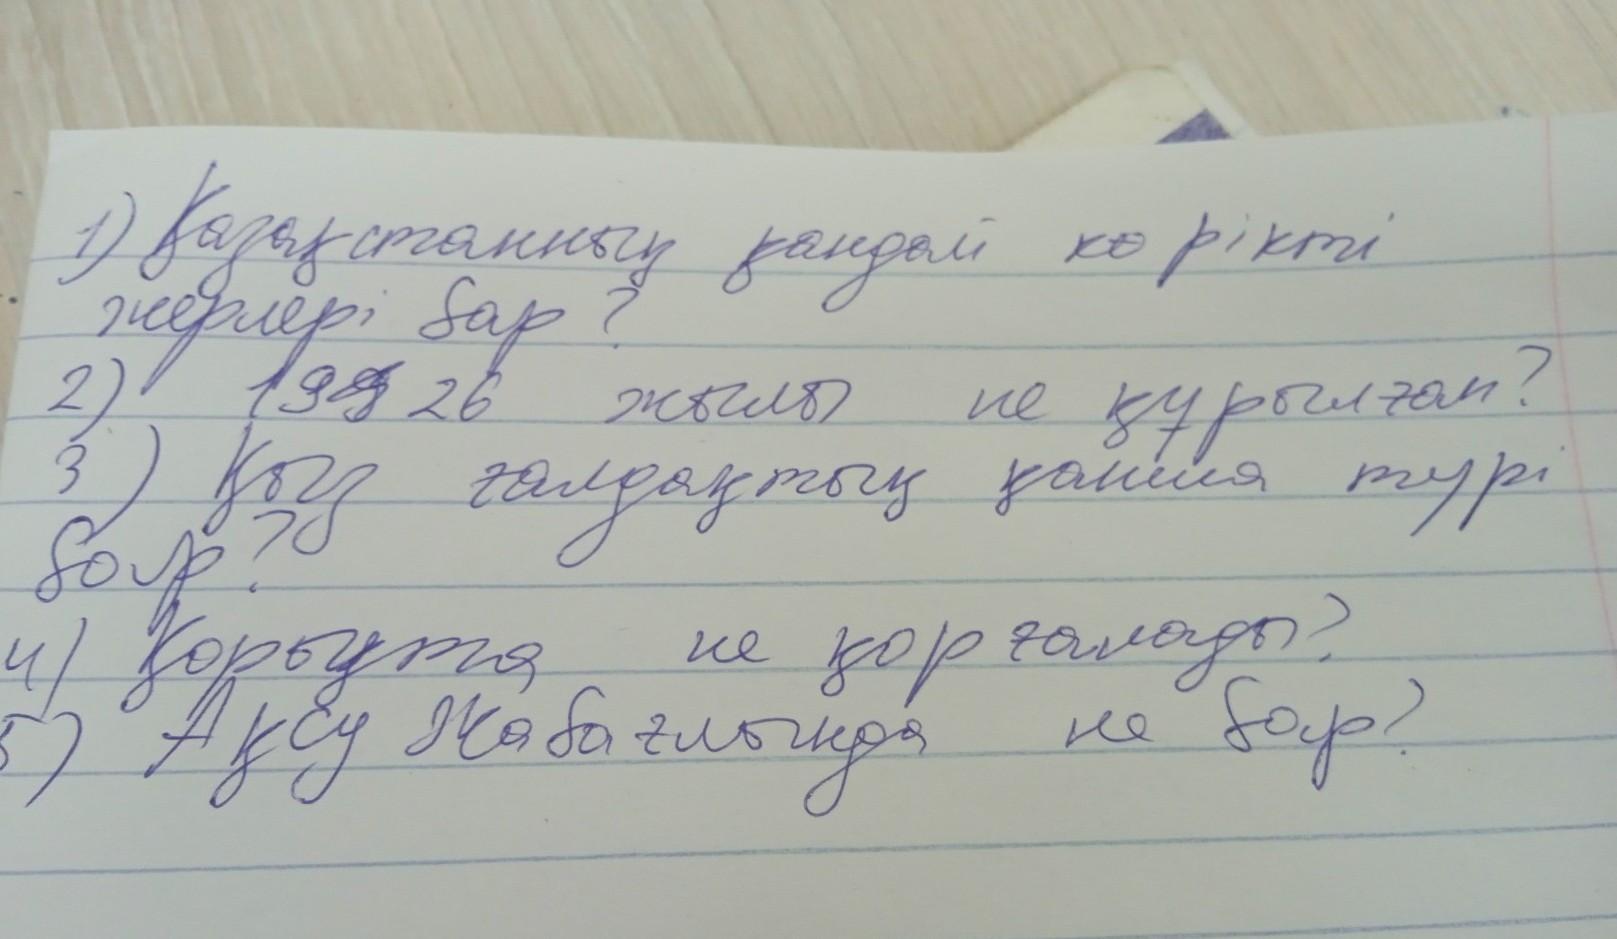 1) Қазақстанның қандай көрікті
жерлері бар?
2) 1926 жылы не құрылған?
3) Қызғалдақтың қанша түрі
бар?
4) Қорықта не қорғалады?
5) Ақсу Жабағлында не бар?